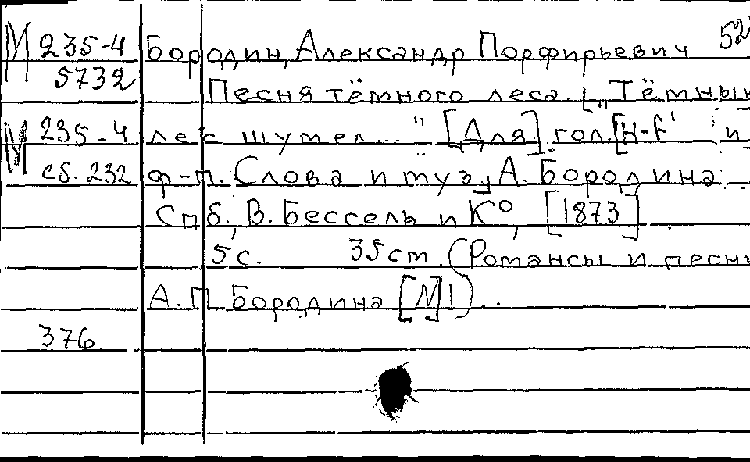 М 235-4 Бородин, Александр Порфирьевич 52
5732 Песня тёмного леса. ["Тёмный
М 235-4 лес шумел..." [Для] гол. [н-f'] и
сб. 232 ф-п. Слова и муз. А. Бородина.
Спб., В. Бессель и К°, [1873]
5 с. 35 cm. (Романсы и песни
А. П. Бородина [№]1)..
376